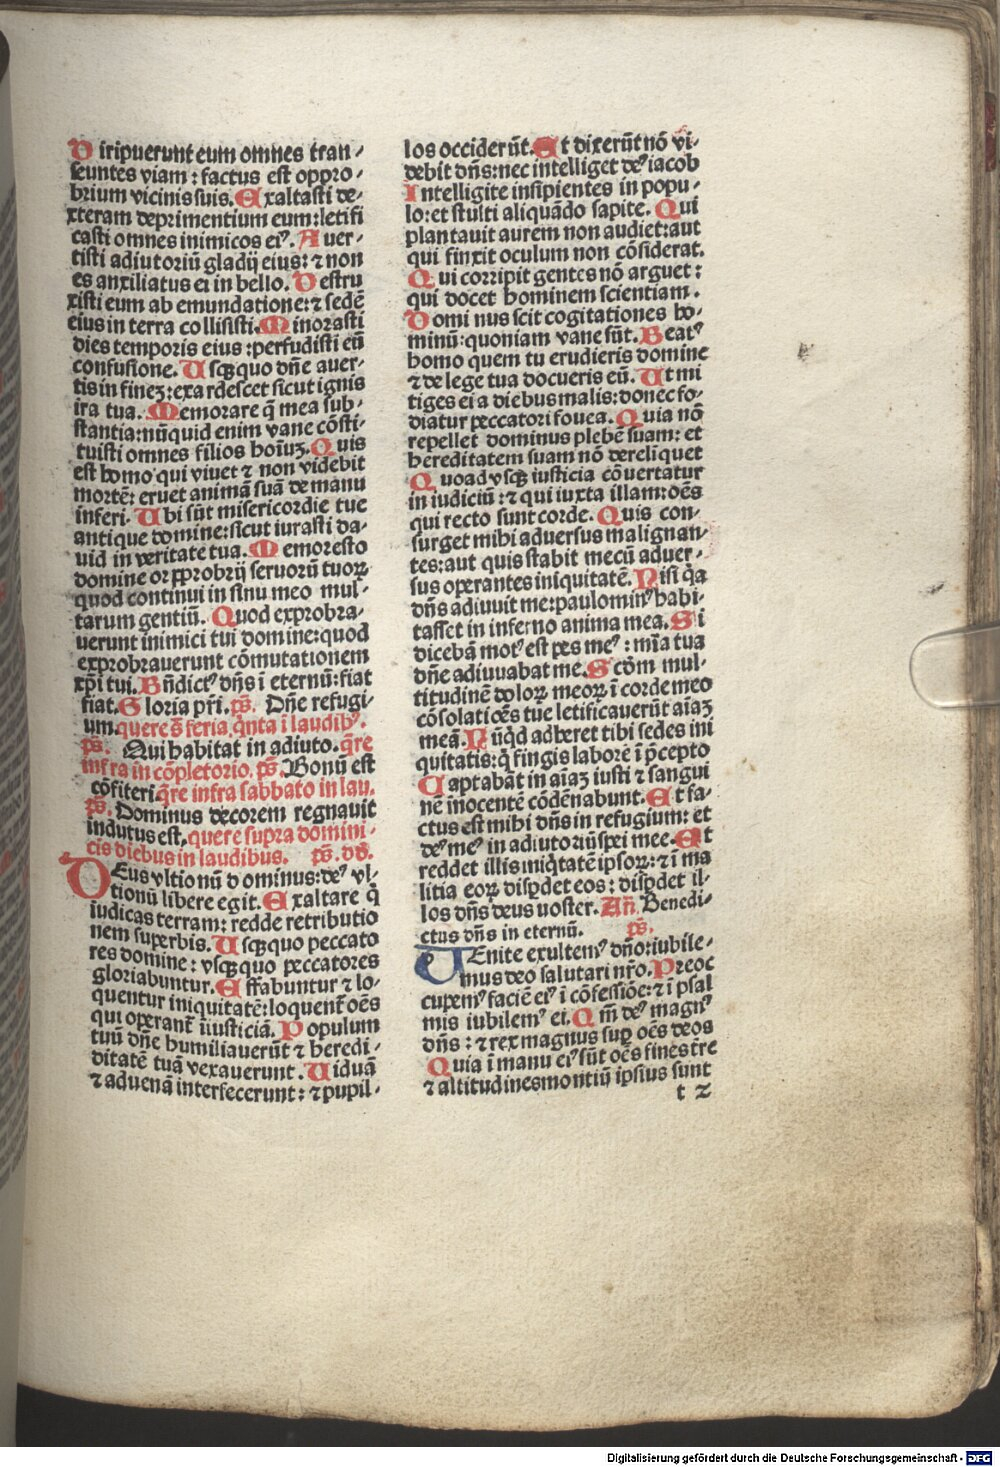 Diripuerunt eum omnes tran-
seuntes viam: factus est oppro-
brium vicinis suis. Exaltasti de-
xteram deprimentium eum: letifi
casti omnes inimicos eiꝰ. Auer-
tisti adiutoriũ gladij eius: ⁊ non
es anxiliatus ei in bello. Destru
xisti eum ab emundatione: ⁊ sedẽ
eius in terra collisisti. Minorasti
dies temporis eius: perfudisti eũ
confusione. Usqꝫquo dñe auer-
tis in fineꝫ: exardescet sicut ignis
ira tua. Memorare q̃ mea sub-
stantia: nũquid enim vane cõsti-
tuisti omnes filios hoĩuꝫ. Quis
est homo qui viuet ⁊ non videbit
mortẽ: eruet animã suã de manu
inferi. Ubi sũt misericordie tue
antique domine: sicut iurasti da-
uid in veritate tua. Memor esto
domine opprobrij seruorũ tuoꝝ
quod continui in sinu meo mul-
tarum gentiũ. Quod exprobra-
uerunt inimici tui domine: quod
exprobrauerunt cõmutationem
xp̃i tui. Bñdictꝰ dñs ĩ eternũ: fiat
fiat. Gloria pr̃i. ps̃. Dñe refugi-
um. quere ĩ feria. q̃nta ĩ laudibꝰ.
ps̃. Qui habitat in adiuto. q̃re
infra in cõpletorio. ps̃. Bonũ est
cõfiteri. q̃re infra sabbato in lau.
ps̃. Dominus decorem regnauit
indutus est. quere supra domini-
cis diebus in laudibus. ps̃. dd̃.
DEus vltionũ dominus: deꝰ vl-
tionũ libere egit. Exaltare q̃
iudicas terram: redde retributio
nem superbis. Usqꝫquo peccato
res domine: vsqꝫquo peccatores
gloriabuntur. Effabuntur ⁊ lo-
quentur iniquitatẽ: loquent᷑ oẽs
qui operant᷑ iniusticiã. Populum
tuũ dñe humiliauerũt ⁊ heredi-
ditatẽ tuã vexauerunt. Uiduã
⁊ aduenã interfecerunt: ⁊ pupil-
los occiderũt. Et dixerũt nõ vi-
debit dñs: nec intelliget deꝰ iacob
Intelligite insipientes in popu-
lo: et stulti aliquãdo sapite. Qui
plantauit aurem non audiet: aut
qui finxit oculum non cõsiderat.
Qui corripit gentes nõ arguet:
qui docet hominem scientiam.
Domi nus scit cogitationes ho-
minũ: quoniam vane sũt. Beatꝰ
homo quem tu erudieris domine
⁊ de lege tua docueris eũ. Ut mi
tiges ei a diebus malis: donec fo-
diatur peccatori fouea. Quia nõ
repellet dominus plebẽ suam: et
hereditatem suam nõ derelíquet
Quoadvsqꝫ iusticia cõuertatur
in iudiciũ: ⁊ qui iuxta illam: oẽs
qui recto sunt corde. Quis con-
surget mihi aduersus malignan-
tes: aut quis stabit mecũ aduer-
sus operantes iniquitatẽ. Nisi q̃a
dñs adiuuit me: paulominꝰ habi-
tasset in inferno anima mea. Si
dicebã motꝰ est pes meꝰ: mĩa tua
dñe adiuuabat me. Scd̃m mul-
titudinẽ doloꝝ meoꝝ ĩ corde meo
cõsolatiões tue letificauerũt aĩaꝫ
meã. Nũq̃d adheret tibi sedes ini
quitatis: q̃ fingis laborẽ ĩ p̃cepto
Captabãt in aĩaꝫ iusti ⁊ sangui
nẽ inocentẽ cõdẽnabunt. Et fa-
ctus est mihi dñs in refugium: et
deꝰ meꝰ in adiutoriũ spei mee. Et
reddet illis iniq̃tatẽ ipsoꝝ: ⁊ ĩ ma
litia eoꝝ disꝑdet eos: disꝑdet il-
los dñs deus noster. Añ. Benedi-
ctus dñs in eternũ. ps̃.
UEnite exultemꝰ dño: iubile-
mus deo salutari nr̃o. Preoc
cupemꝰ faciẽ eiꝰ ĩ cõfessiõe: ⁊ ĩ psal
mis iubilemꝰ ei. Qm̃ deꝰ magnꝰ
dñs: ⁊ rex magnus suꝑ oẽs deos
Quia ĩ manu eiꝰ sũt oẽs fines tr̃e
⁊ altitudines montiũ ipsius sunt
t 2
Digitalisierung gefördert durch die Deutsche Forschungsgemeinschaft - DFG